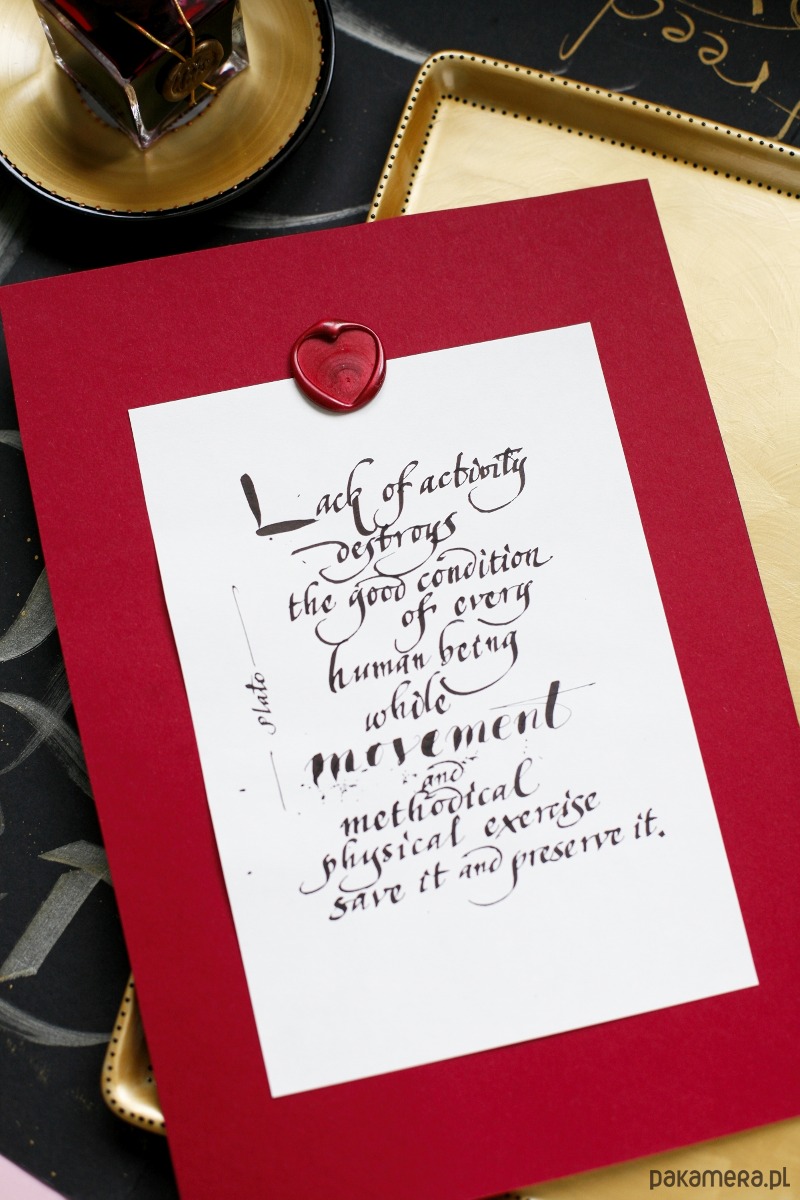 reed
Lack of activity
destroys
the good condition
of every
human being
while
movement
and
methodical
physical exercise
save it and preserve it.
Plato
pakamera.pl